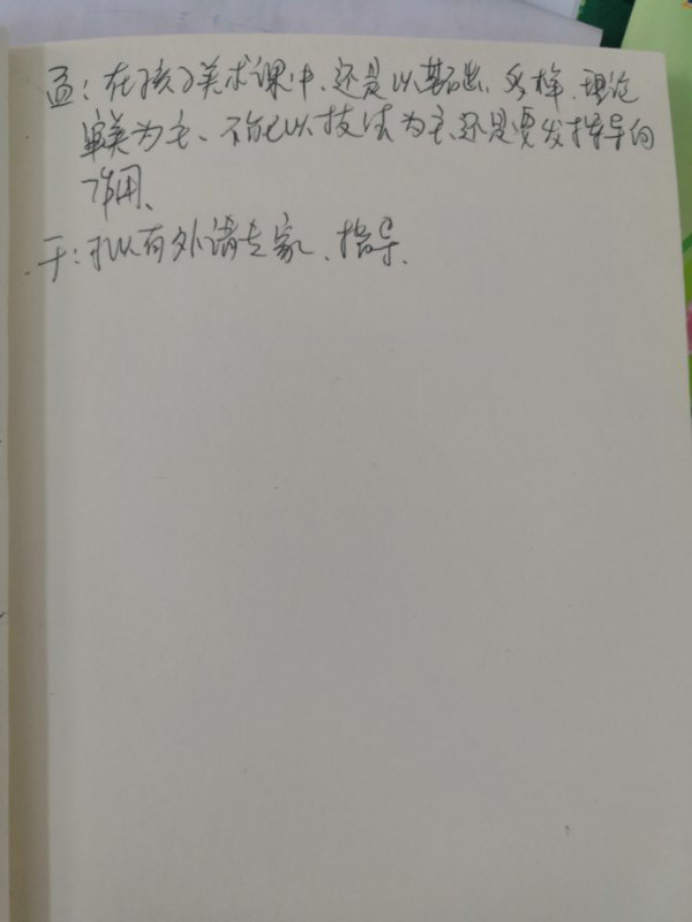 孟:在孩子美术课中、还是以基础、多样、理论
审美为主、不能以技法为主、还是要发挥导向
作用、
于:可以有外请专家、指导、